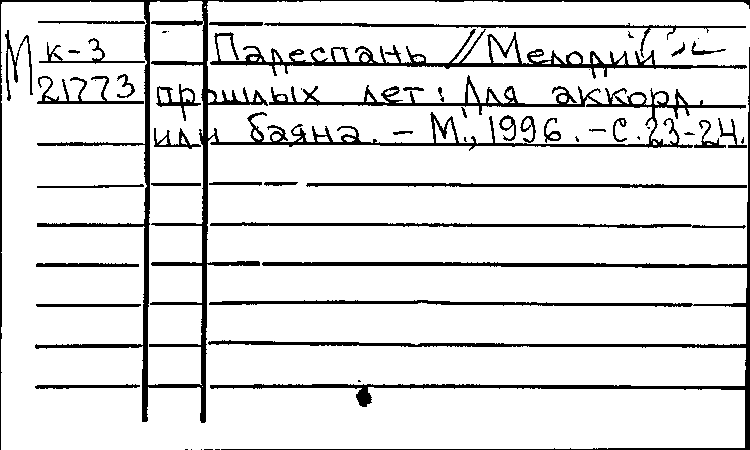 М к-3 Падеспань // Мелодии
21773 прошлых лет: Для аккорд.
или баяна. - М., 1996. - С. 23-24.